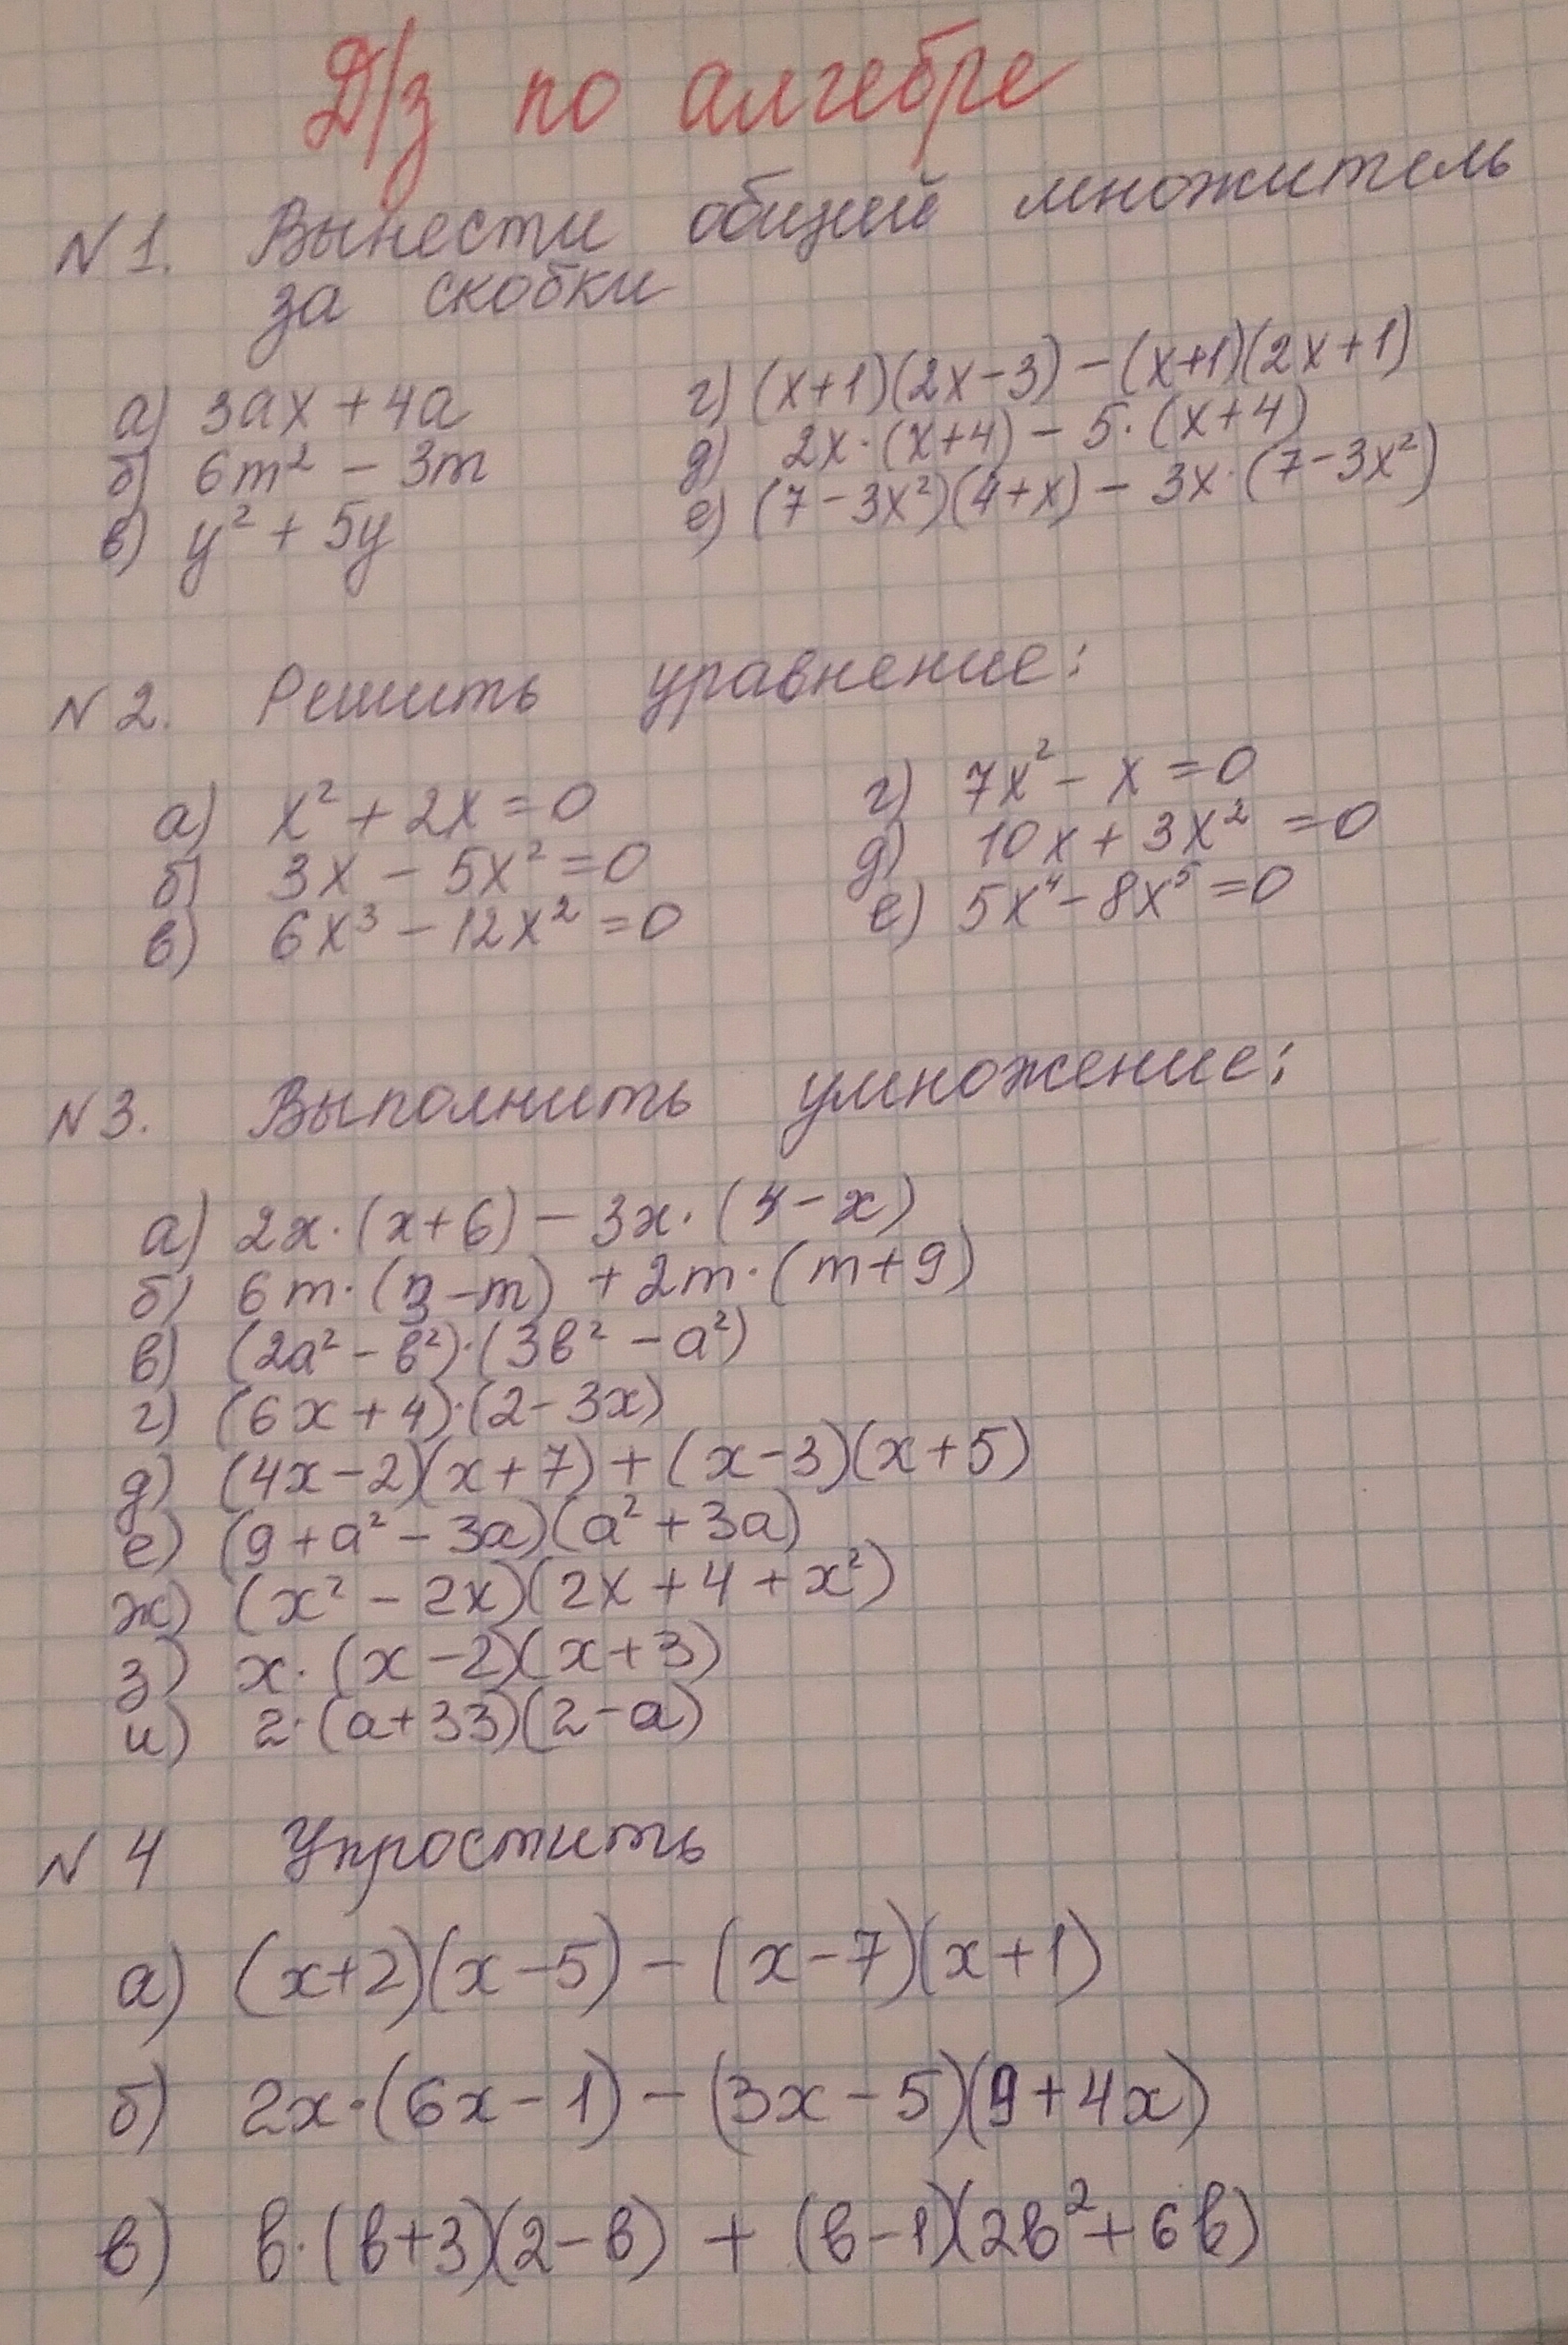 Д/з по алгебре
N 1. Вынести общий множитель
за скобки
а) 3ax + 4a
б) 6m² - 3m
в) y² + 5y
г) (x+1)(2x-3) - (x+1)(2x+1)
д) 2x·(x+4) - 5·(x+4)
е) (7-3x²)(4+x) - 3x·(7-3x²)
N 2. Решить уравнение:
а) x² + 2x = 0
б) 3x - 5x² = 0
в) 6x³ - 12x² = 0
г) 7x² - x = 0
д) 10x + 3x² = 0
е) 5x⁴ - 8x⁵ = 0
N 3. Выполнить умножение:
а) 2x·(x+6) - 3x·(4-x)
б) 6m·(3-m) + 2m·(m+9)
в) (2a² - b²)·(3b² - a²)
г) (6x+4)·(2-3x)
д) (4x-2)(x+7) + (x-3)(x+5)
е) (9+a²-3a)(a²+3a)
ж) (x² - 2x)(2x+4+x²)
з) x·(x-2)(x+3)
и) 2·(a+33)(2-a)
N 4 Упростить
а) (x+2)(x-5) - (x-7)(x+1)
б) 2x·(6x-1) - (3x-5)(9+4x)
в) b·(b+3)(2-b) + (b-1)(2b²+6b)